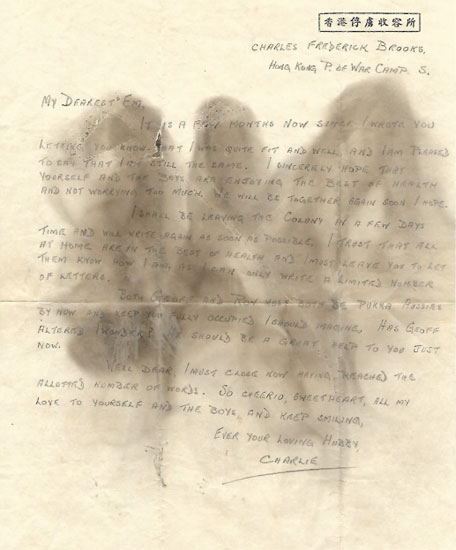 香港俘虜收容所
CHARLES FREDERICK BROOKS,
HONG KONG P. OF WAR CAMP. S.
MY DEAREST EM,
IT IS A FEW MONTHS NOW SINCE I WROTE YOU
LETTING YOU KNOW THAT I WAS QUITE FIT AND WELL, AND I AM PLEASED
TO SAY THAT I AM STILL THE SAME. I SINCERELY HOPE THAT
YOURSELF AND THE BOYS ARE ENJOYING THE BEST OF HEALTH
AND NOT WORRYING TOO MUCH, WE WILL BE TOGETHER AGAIN SOON I HOPE.
I SHALL BE LEAVING THE COLONY IN A FEW DAYS
TIME AND WILL WRITE AGAIN AS SOON AS POSSIBLE. I TRUST THAT ALL
AT HOME ARE IN THE BEST OF HEALTH AND I MUST LEAVE YOU TO LET
THEM KNOW HOW I AM, AS I CAN ONLY WRITE A LIMITED NUMBER
OF LETTERS.
BOTH GEOFF AND MUST BOTH BE PUKKA AUSSIES
BY NOW AND KEEP YOU FULLY OCCUPIED I SHOULD IMAGINE, HAS GEOFF
ALTERED I WONDER? HE SHOULD BE A GREAT HELP TO YOU JUST
NOW.
WELL DEAR, I MUST CLOSE NOW HAVING REACHED THE
ALLOTTED NUMBER OF WORDS. SO CHEERIO, SWEETHEART, ALL MY
LOVE TO YOURSELF AND THE BOYS, AND KEEP SMILING,
EVER YOUR LOVING HUBBY,
CHARLIE